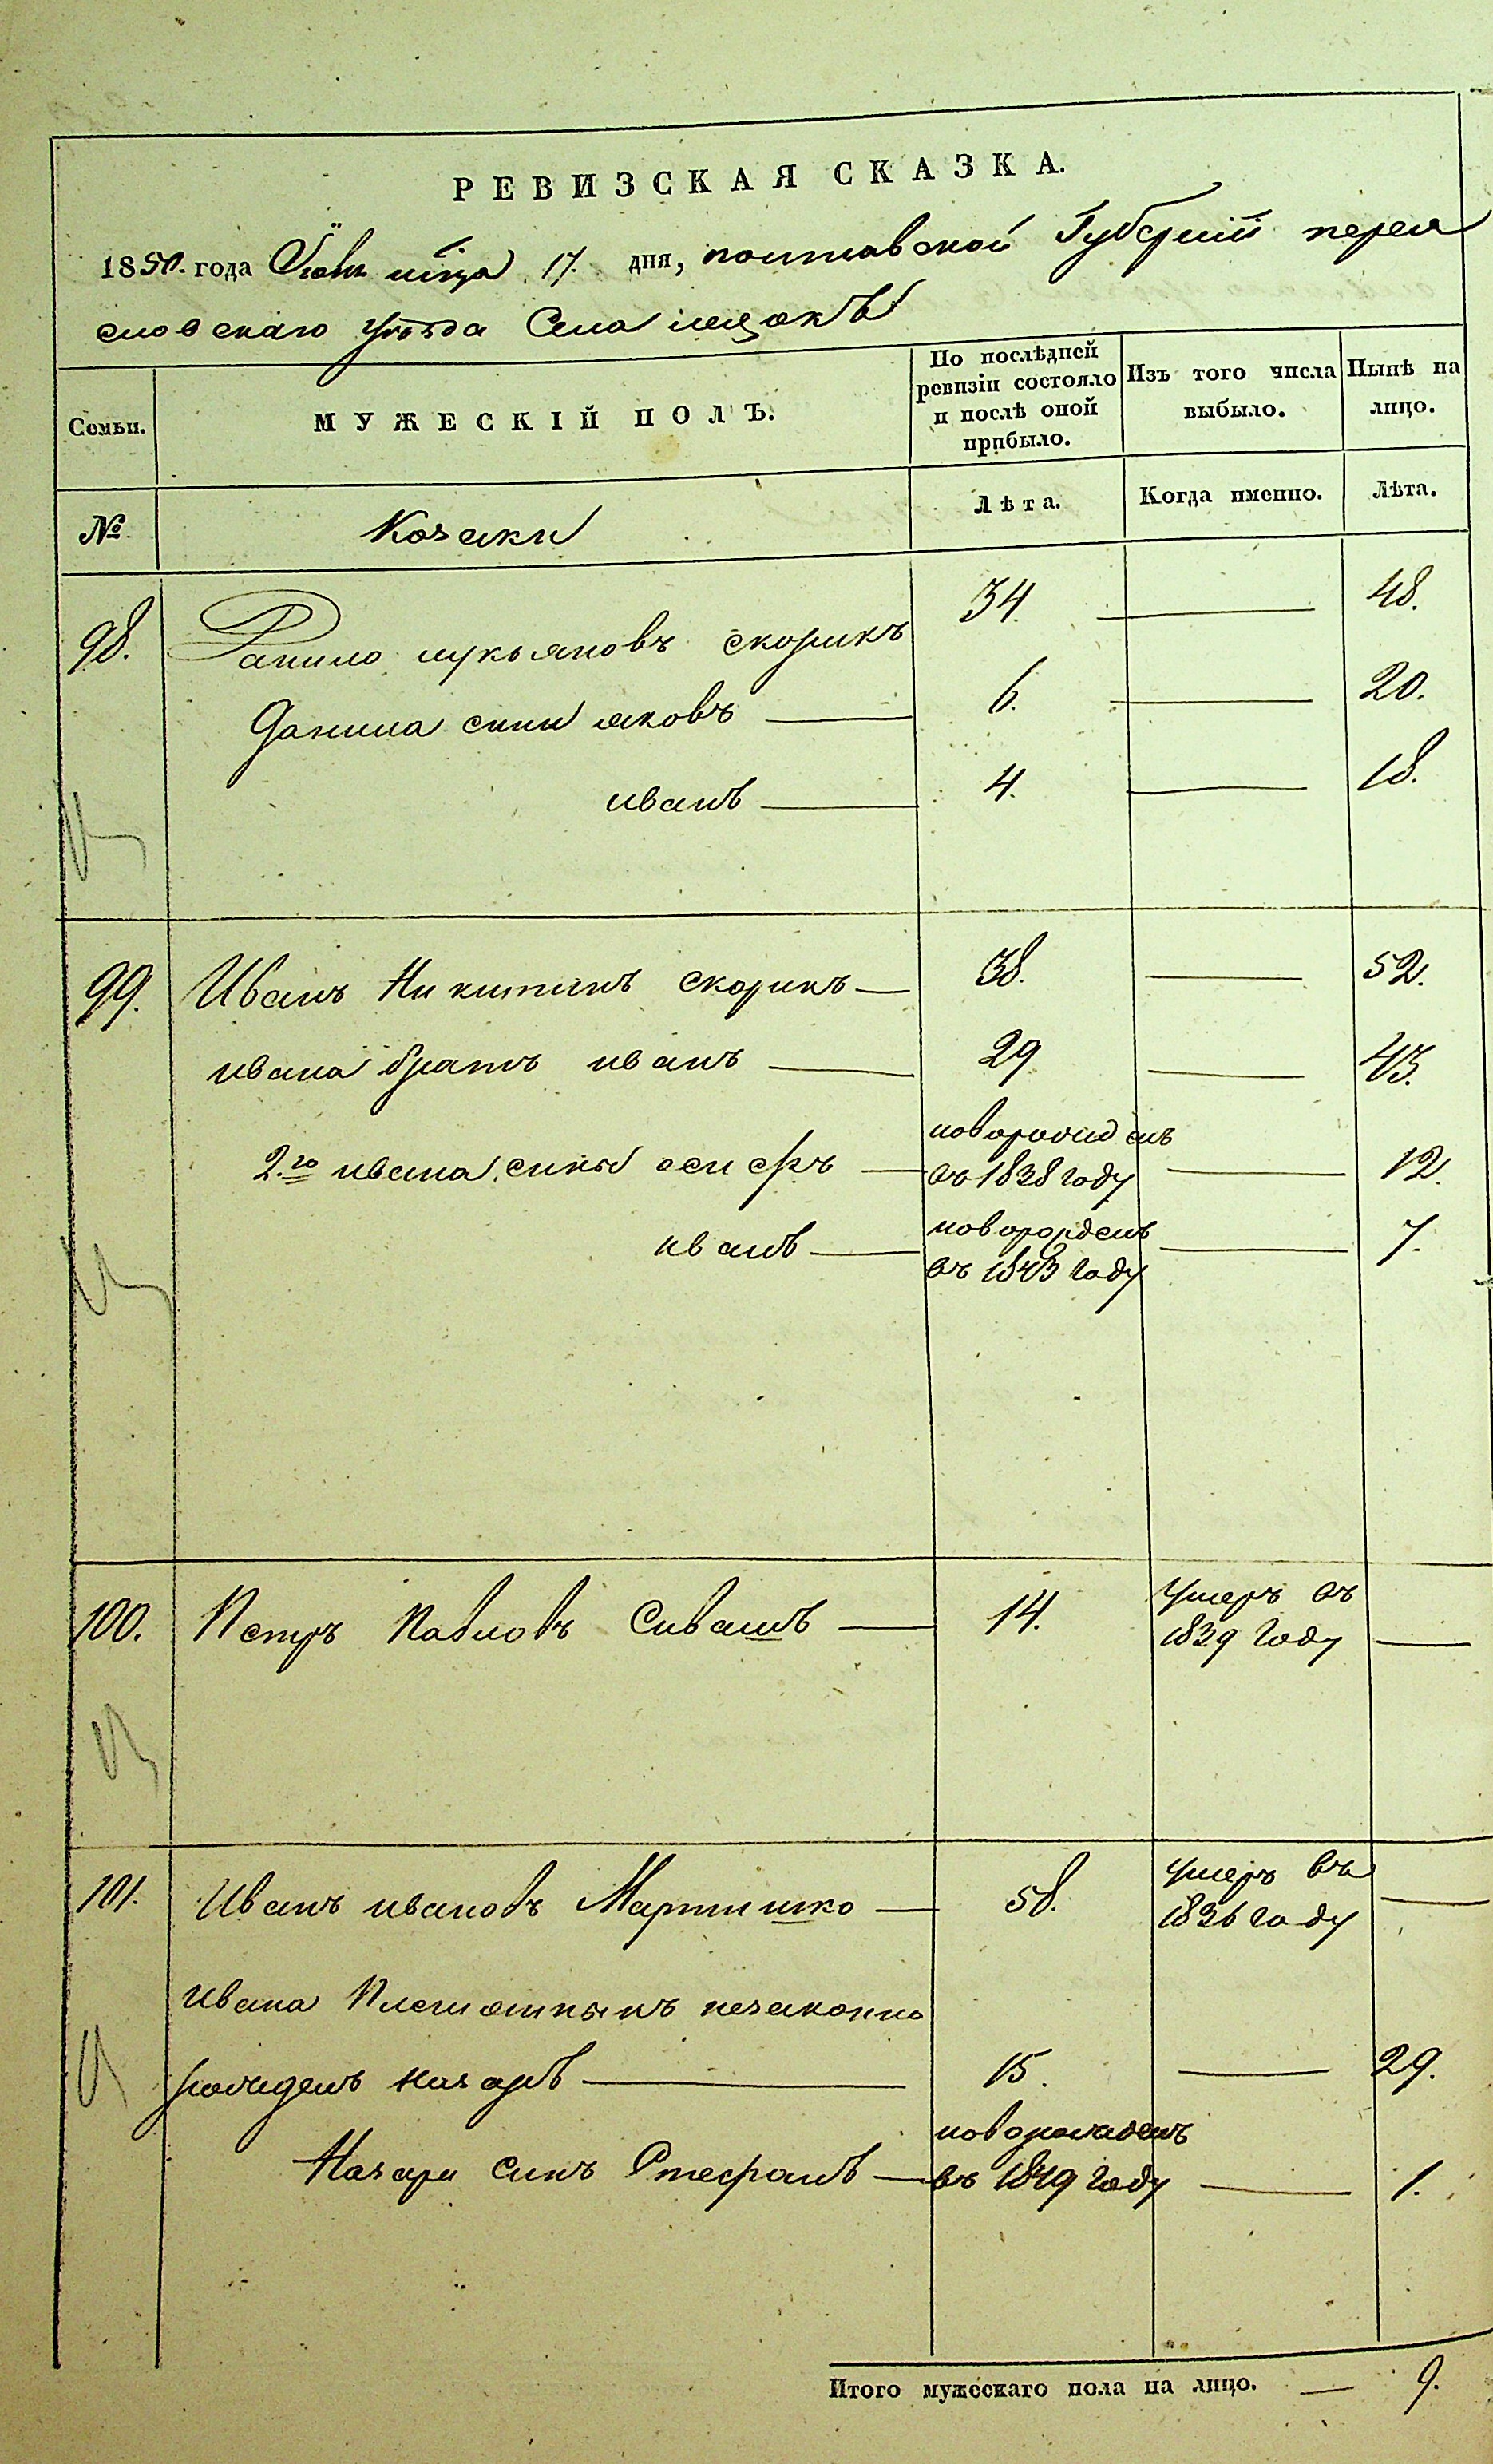 РЕВИЗСКАЯ СКАЗКА.
1850. года м͠ца 17. дня, полтавской Губерніи перея
словскаго уѣзда Села лецокъ
Семьи.
МУЖЕСКІЙ ПОЛЪ.
По послѣдней ревизіи состояло и послѣ оной прибыло.
Изъ того числа выбыло.
Нынѣ на лицо.
№
Козаки
Лѣта.
Когда именно.
Лѣта.
98. Данило лукьяновъ скорикъ 34. — 48.
Данила сины яковъ — 6. — 20.
иванъ — 4. — 18.
99. Иванъ Никитинъ скорикъ — 38. — 52.
ивана братъ иванъ — 29 — 43.
2.го ивана сины осифъ — новорожденъ въ 1838 году — 12.
иванъ — новорожденъ въ 1843 году — 7.
100. Петръ Павловъ Сивашъ — 14. умеръ въ 1839 году —
101. Иванъ ивановъ Мартишко — 58. умеръ въ 1836 году —
Ивана Племянныкъ незаконно
рожденъ назаръ — 15. — 29.
Назара синъ Стефанъ — новорожденъ въ 1849 году — 1.
Итого мужескаго пола на лицо. — 9.